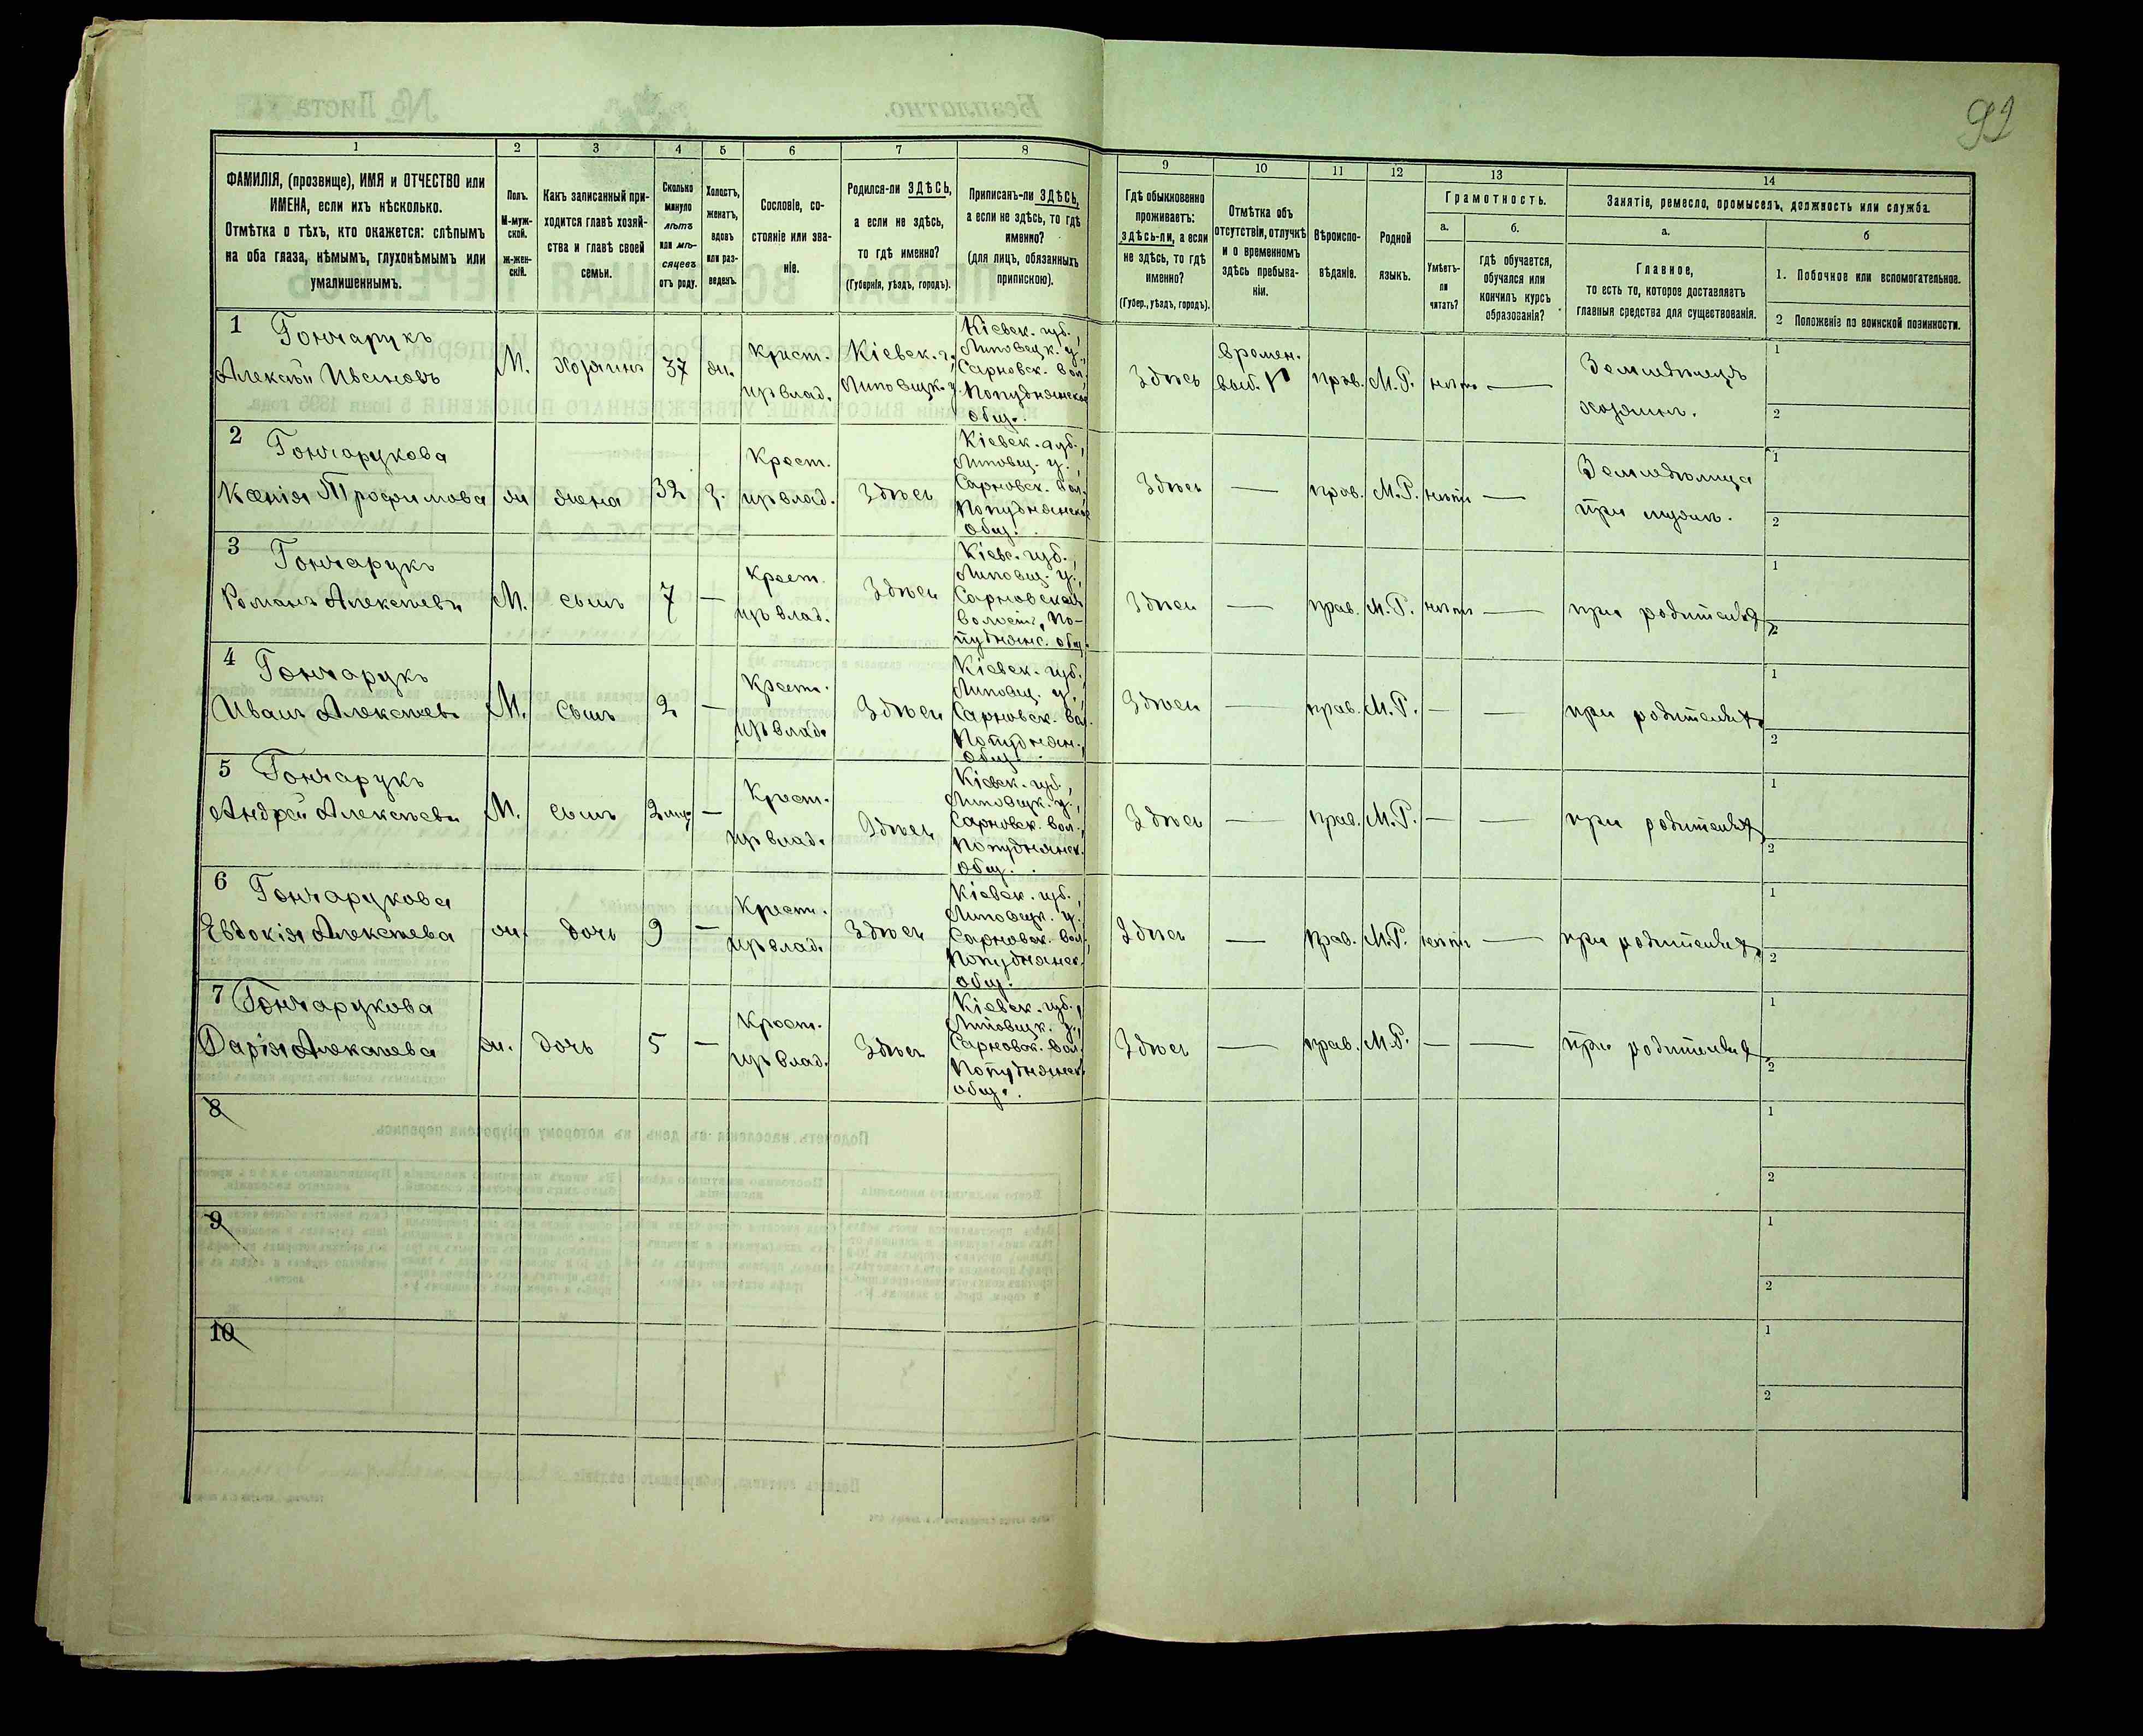 92
1
2
3
4
5
6
7
8
9
10
11
12
13
14
ФАМИЛІЯ, (прозвище), ИМЯ и ОТЧЕСТВО или
ИМЕНА, если ихъ нѣсколько.
Отмѣтка о тѣхъ, кто окажется: слѣпымъ
на оба глаза, нѣмымъ, глухонѣмымъ или
умалишеннымъ.
Полъ.
М-муж-
ской.
ж-жен-
скій.
Какъ записанный при-
ходится главѣ хозяй-
ства и главѣ своей
семьи.
Сколько
минуло
лѣтъ
или мѣ-
сяцевъ
отъ роду.
Холостъ,
женатъ,
вдовъ
или раз-
веденъ.
Сословіе, со-
стояніе или зва-
ніе.
Родился-ли ЗДѢСЬ,
а если не здѣсь,
то гдѣ именно?
(Губернія, уѣздъ, городъ).
Приписанъ-ли ЗДѢСЬ,
а если не здѣсь, то гдѣ
именно?
(для лицъ, обязанныхъ
припискою).
Гдѣ обыкновенно
проживаетъ:
здѣсь-ли, а если
не здѣсь, то гдѣ
именно?
(Губер., уѣздъ, городъ).
Отмѣтка объ
отсутствіи, отлучкѣ
и о временномъ
здѣсь пребыва-
ніи.
Вѣроиспо-
вѣданіе.
Родной
языкъ.
Грамотность.
а.
Умѣетъ-
ли
читать?
б.
гдѣ обучается,
обучался или
кончилъ курсъ
образованія?
Занятіе, ремесло, промыселъ, должность или служба.
а.
Главное,
то есть то, которое доставляетъ
главныя средства для существованія.
б
1. Побочное или вспомогательное.
2 Положеніе по воинской повинности.
1 Гончарукъ
Алексѣй Ивановъ
М.
Хозяинъ
37
ж.
Крест.
из влад.
Кіевск. г.,
Липовецк. у.
Кіевск. губ.,
Липовецк. у.,
Сарновск. вол.,
Попуднянское
общ.
Здѣсь
времен.
выб.
прав.
М. Р.
нѣтъ
—
Земледѣлецъ
хозяинъ.
1
2
2 Гончарукова
Ксенія Трофимова
ж
жена
32
з.
Крест.
из влад.
Здѣсь
Кіевск. губ.,
Липовец. у.,
Сарновск. вол.,
Попуднянское
общ.
Здѣсь
—
прав.
М. Р.
нѣтъ
—
Земледѣлица
при мужѣ.
1
2
3 Гончарукъ
Романъ Алексѣевъ
М.
сынъ
7
—
Крест.
из влад.
Здѣсь
Кіевс. губ.,
Липовец. у.,
Сарновской
волости, По-
пуднянс. общ.
Здѣсь
—
прав.
М. Р.
нѣтъ
—
при родителях
1
2
4 Гончарукъ
Иванъ Алексѣевъ
М.
сынъ
2
—
Крест.
из влад.
Здѣсь
Кіевск. губ.,
Липовец. у.,
Сарновск. вол.
Попуднян.
общ.
Здѣсь
—
прав.
М. Р.
—
—
при родителях
1
2
5 Гончарукъ
Андрей Алексѣевъ
М.
сынъ
2 мѣс
—
Крест.
из влад.
Здѣсь
Кіевск. губ.,
Липовецк. у.,
Сарновск. вол.,
Попуднянск.
общ.
Здѣсь
—
прав.
М. Р.
—
—
при родителях
1
2
6 Гончарукова
Евдокія Алексѣева
ж.
дочь
9
—
Крест.
из влад.
Здѣсь
Кіевск. губ.,
Липовецк. у.
Сарновск. вол.,
Попуднянск.
общ.
Здѣсь
—
прав.
М. Р.
нѣтъ
—
при родителях
1
2
7 Гончарукова
Дарія Алексѣева
ж.
дочь
5
—
Крест.
из влад.
Здѣсь
Кіевск. губ.,
Липовецк. у.,
Сарновск. вол.
Попуднянск.
общ.
Здѣсь
—
прав.
М. Р.
—
—
при родителях
1
2
8
1
2
9
1
2
10
1
2